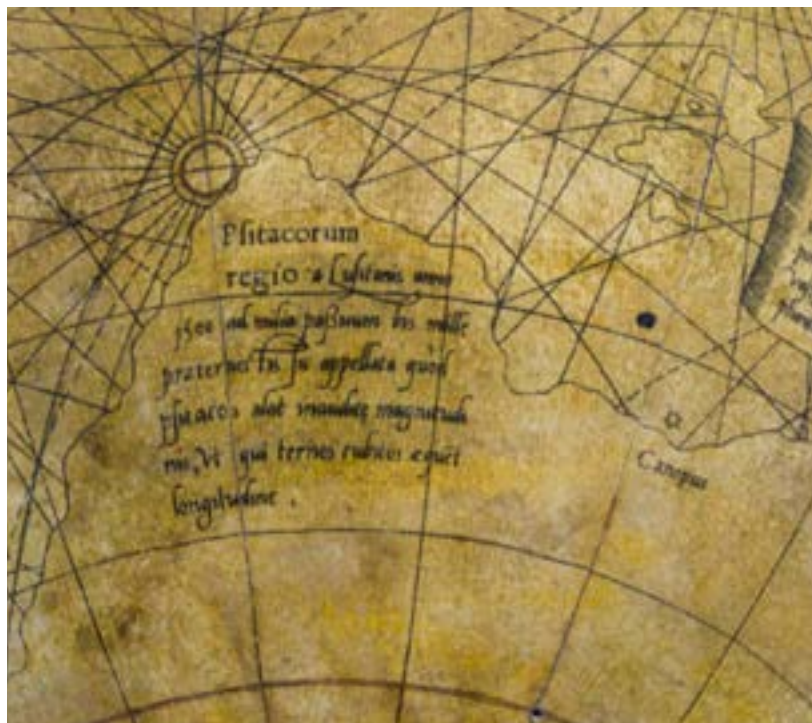 Psitacorum
regio a Lusitanis anno
ad milia passuum bis mille
praterue ctis sic appellata quod
psitacos alat inauditę magnitudi
nis, Vt qui ternos cubitos equēt
longitudine .
Canopus